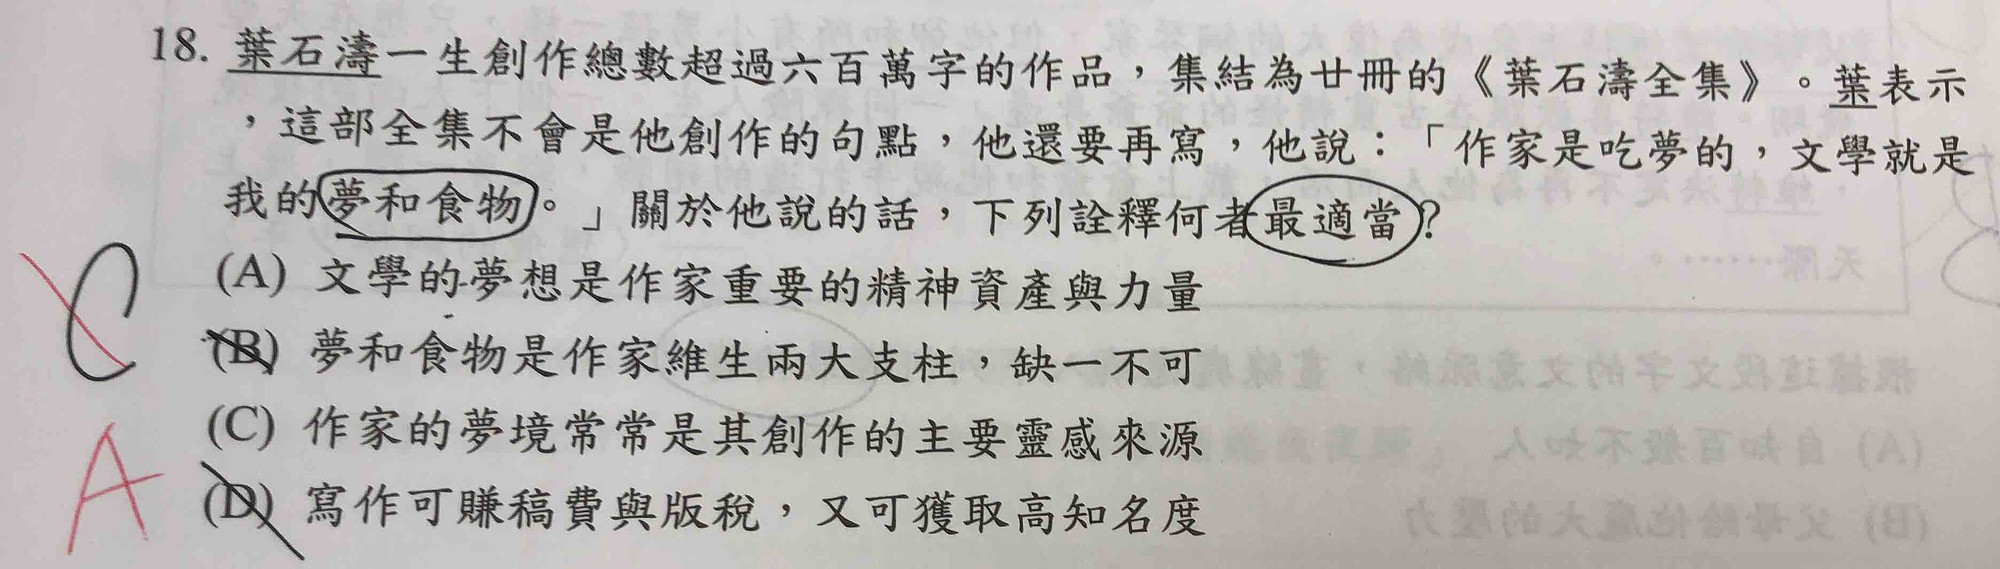 18. 葉石濤一生創作總數超過六百萬字的作品，集結為廿冊的《葉石濤全集》。葉表示
，這部全集不會是他創作的句點，他還要再寫，他說：「作家是吃夢的，文學就是
我的夢和食物。」關於他說的話，下列詮釋何者最適當？
(A) 文學的夢想是作家重要的精神資產與力量
(B) 夢和食物是作家維生兩大支柱，缺一不可
(C) 作家的夢境常常是其創作的主要靈感來源
(D) 寫作可賺稿費與版稅，又可獲取高知名度
C
A